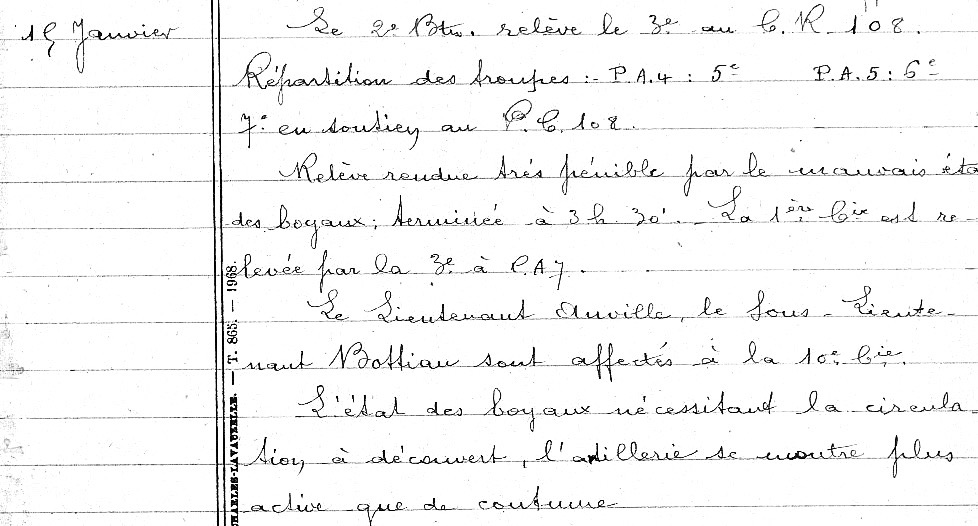 15 Janvier
Le 2e Btn. relève le 3e au C.R. 108.
Répartition des troupes :- P.A.4 : 5e P.A.5 : 6e
7e en soutien au P.C. 108.
Relève rendue très pénible par le mauvais éta
des boyaux; terminée à 3h 30'. La 1ère Cie est re-
levée par la 3e à P.A 7.
Le Lieutenant Anville, le Sous-Lieute-
nant Bottiau sont affectés à la 10e Cie.
L'état des boyaux nécessitant la circula-
tion à découvert, l'artillerie se montre plus
active que de coutume
HARLES-LAVAUZELLE. — T. 865. — 1968.